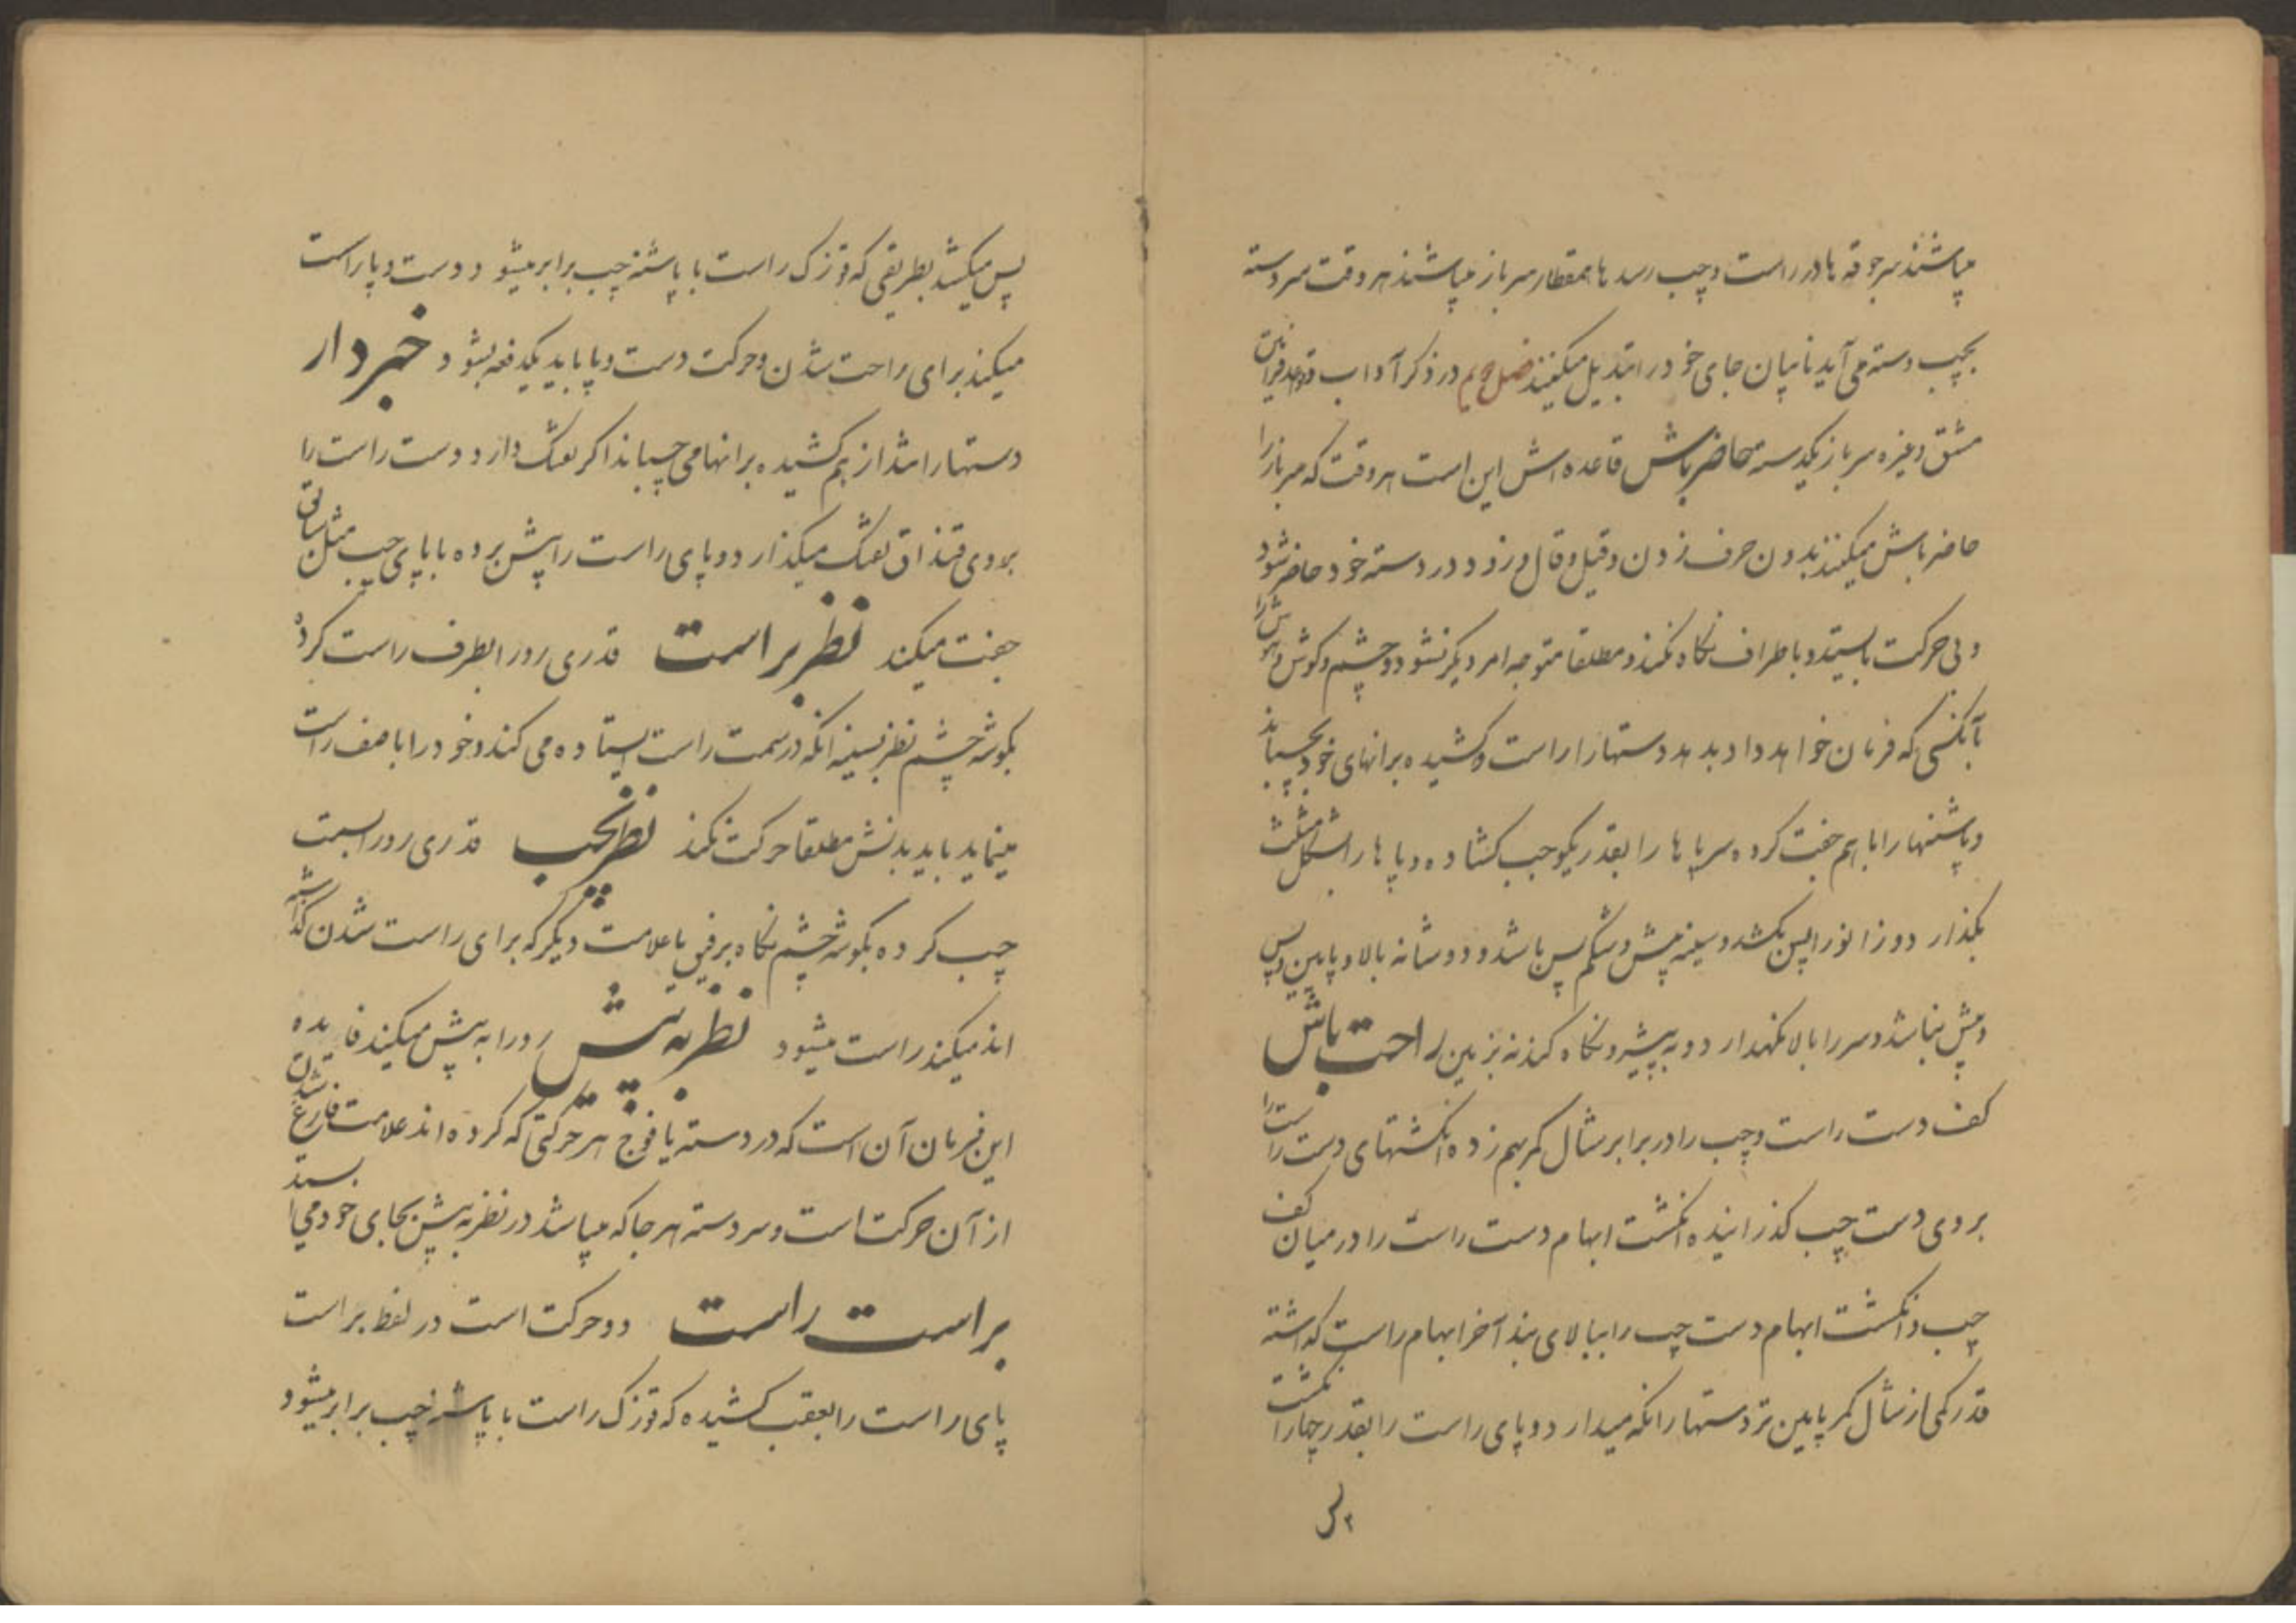 میباشند سرجوقه ها در راست و چپ رسد ها همقطار سرباز میباشند هر وقت سردسته
بچپ دسته می آید نایبان جای خود را تبدیل میکنند فصل دویم در ذکر آداب و قواعد فرامین
مشق و غیره سرباز یکدسته حاضر باش قاعده اش این است هر وقت که سرباز را
حاضر باش میکنند بدون حرف زدن و قیل و قال و زود در دسته خود حاضر شود
و بی حرکت بایستد و باطراف نگاه نکند و مطلقا متوجه امر دیگر نشود و چشم و گوش و هوش را
بآنکسی که فرمان خواهد داد بدهد دستها را راست و کشیده برانهای خود بچسباند
و پاشنها را با هم جفت کرده سر پا ها را بقدر یکوجب کشاده و پا ها را بشکل مثلث
بگذارد و زانو را پس بکشد و سینه پیش و شکم پس باشد و دو شانه بالا و پایین و پس
و پیش نباشد و سر را بالا نگهدارد و به پیشرو نگاه کند نه بزمین راحت باش
کف دست راست و چپ را در برابر شال کمر بهم زده انگشتهای دست راست را
بروی دست چپ گذرانیده انگشت ابهام دست راست را در میان کف
چپ و انگشت ابهام دست چپ را ببالای بند آخر ابهام راست گذاشته
قدر کمی از شال کمر پایین تر دستها را نگه میدارد و پای راست را بقدر چهار انگشت
پس میکشد بطریقی که قوزک راست با پاشنه چپ برابر میشود و دست و پا راست
میکند برای راحت شدن و حرکت دست و پا باید یکدفعه بشود خبردار
دستها را مثل از هم کشیده برانها می چسباند اگر تفنگ دارد دست راست را
بروی قنداق تفنگ میگذارد و پای راست را پیش برده با پای چپ مثل سابق
جفت میکند نظر براست قدری رو را بطرف راست کرده
بگوشه چشم نظر بسینه آنکه در سمت راست ایستاده می کند و خود را با صف راست
مینماید باید بدنش مطلقا حرکت نکند نظر بچپ قدری رو را بسمت
چپ کرده بگوشه چشم نگاه برفیق یا علامت دیگر که برای راست شدن گذاشته
اند میکند راست میشود نظر به پیش رو را به پیش میکند فایده
این فرمان آن است که در دسته یا فوج هر حرکتی که کرده اند علامت فارغ شدن
از آن حرکت است و سر دسته هر جا که میباشد در نظر به پیش بجای خود می ایستد
براست راست دو حرکت است در لفظ براست
پای راست را بعقب کشیده که قوزک راست با پاشنه چپ برابر میشود